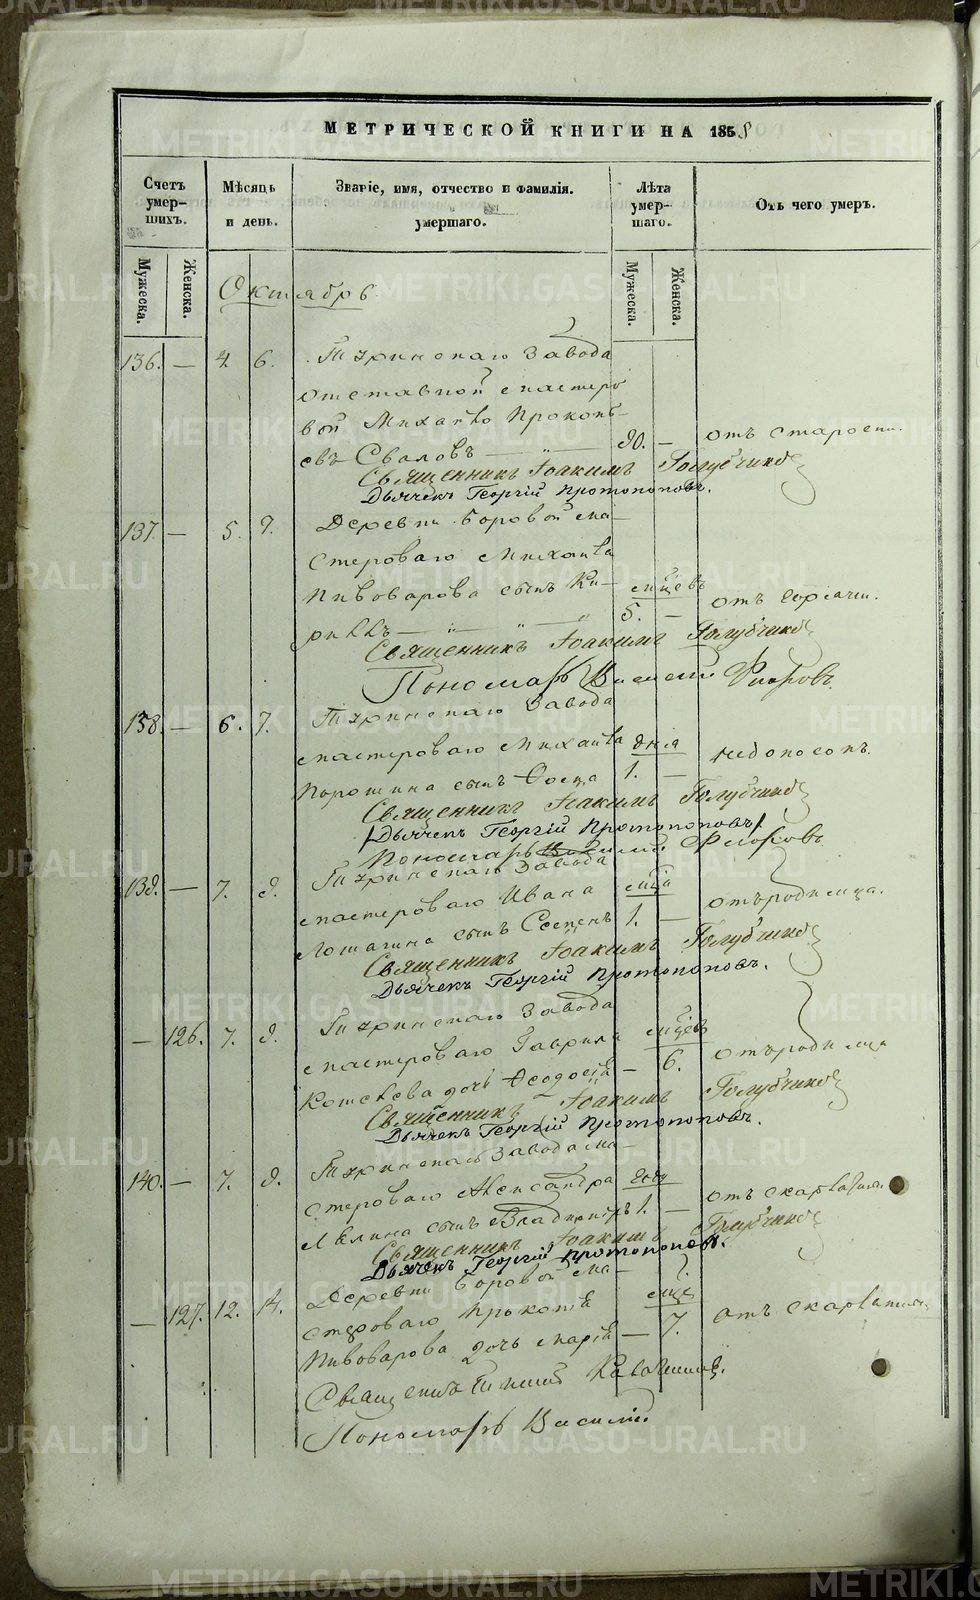 МЕТРИЧЕСКОЙ КНИГИ НА 1858
Счетъ умер- шихъ.
Мѣсяцъ и день.
Званіе, имя, отчество и фамилія. умершаго.
Лѣта умер- шаго.
Отъ чего умеръ.
Мужеска. Женска.
Мужеска. Женска.
Октябрь
136. — 4. 6. Туринскаго Завода
отставной мастеро
вой Михайло Прокопь-
евъ Сваловъ — „ — 80. — отъ старости.
Священникъ Іоакимъ Голубчиковъ
Дьячекъ Георгій Протопоповъ.
137. — 5. 9. Деревни Боровой ма-
стероваго Михаила
Пивоварова сынъ Ки- мѣцевъ
риллъ — „ — „ — „ 5. — отъ горячи.
Священникъ Іоакимъ Голубчиковъ
Пономарь Флоровъ
138. — 6. 7. Туринскаго Завода
мастероваго Михаила дня
Порошина сынъ Ѳома 1. — недоносокъ.
Священникъ Іоакимъ Голубчиковъ
Дьячекъ Георгій Протопоповъ
Пономарь Флоровъ
139. — 7. 9. Туринскаго Завода
мастероваго Ивана мца
Лошагина сынъ 1. — отъ родимца.
Священникъ Іоакимъ Голубчиковъ
Дьячекъ Георгій Протопоповъ.
— 126. 7. 9. Туринскаго Завода
мастероваго Гаврила мцевъ
дочь Ѳеодосія — 6. отъ родимца
Священникъ Іоакимъ Голубчиковъ
Дьячекъ Георгій Протопоповъ.
140. — 7. 9. Туринскаго Завода ма-
стероваго Александра года
сынъ Владимиръ 1. — отъ скарлатины
Священникъ Іоакимъ Голубчиковъ
Дьячекъ Георгій Протопоповъ.
— 127. 12. 14. Деревни Боровой ма-
стероваго Прокопія мце
Пивоварова дочь Марія — 7. отъ скарлатины
Священникъ
Пономарь Василій
METRIKI.GASO-URAL.RU